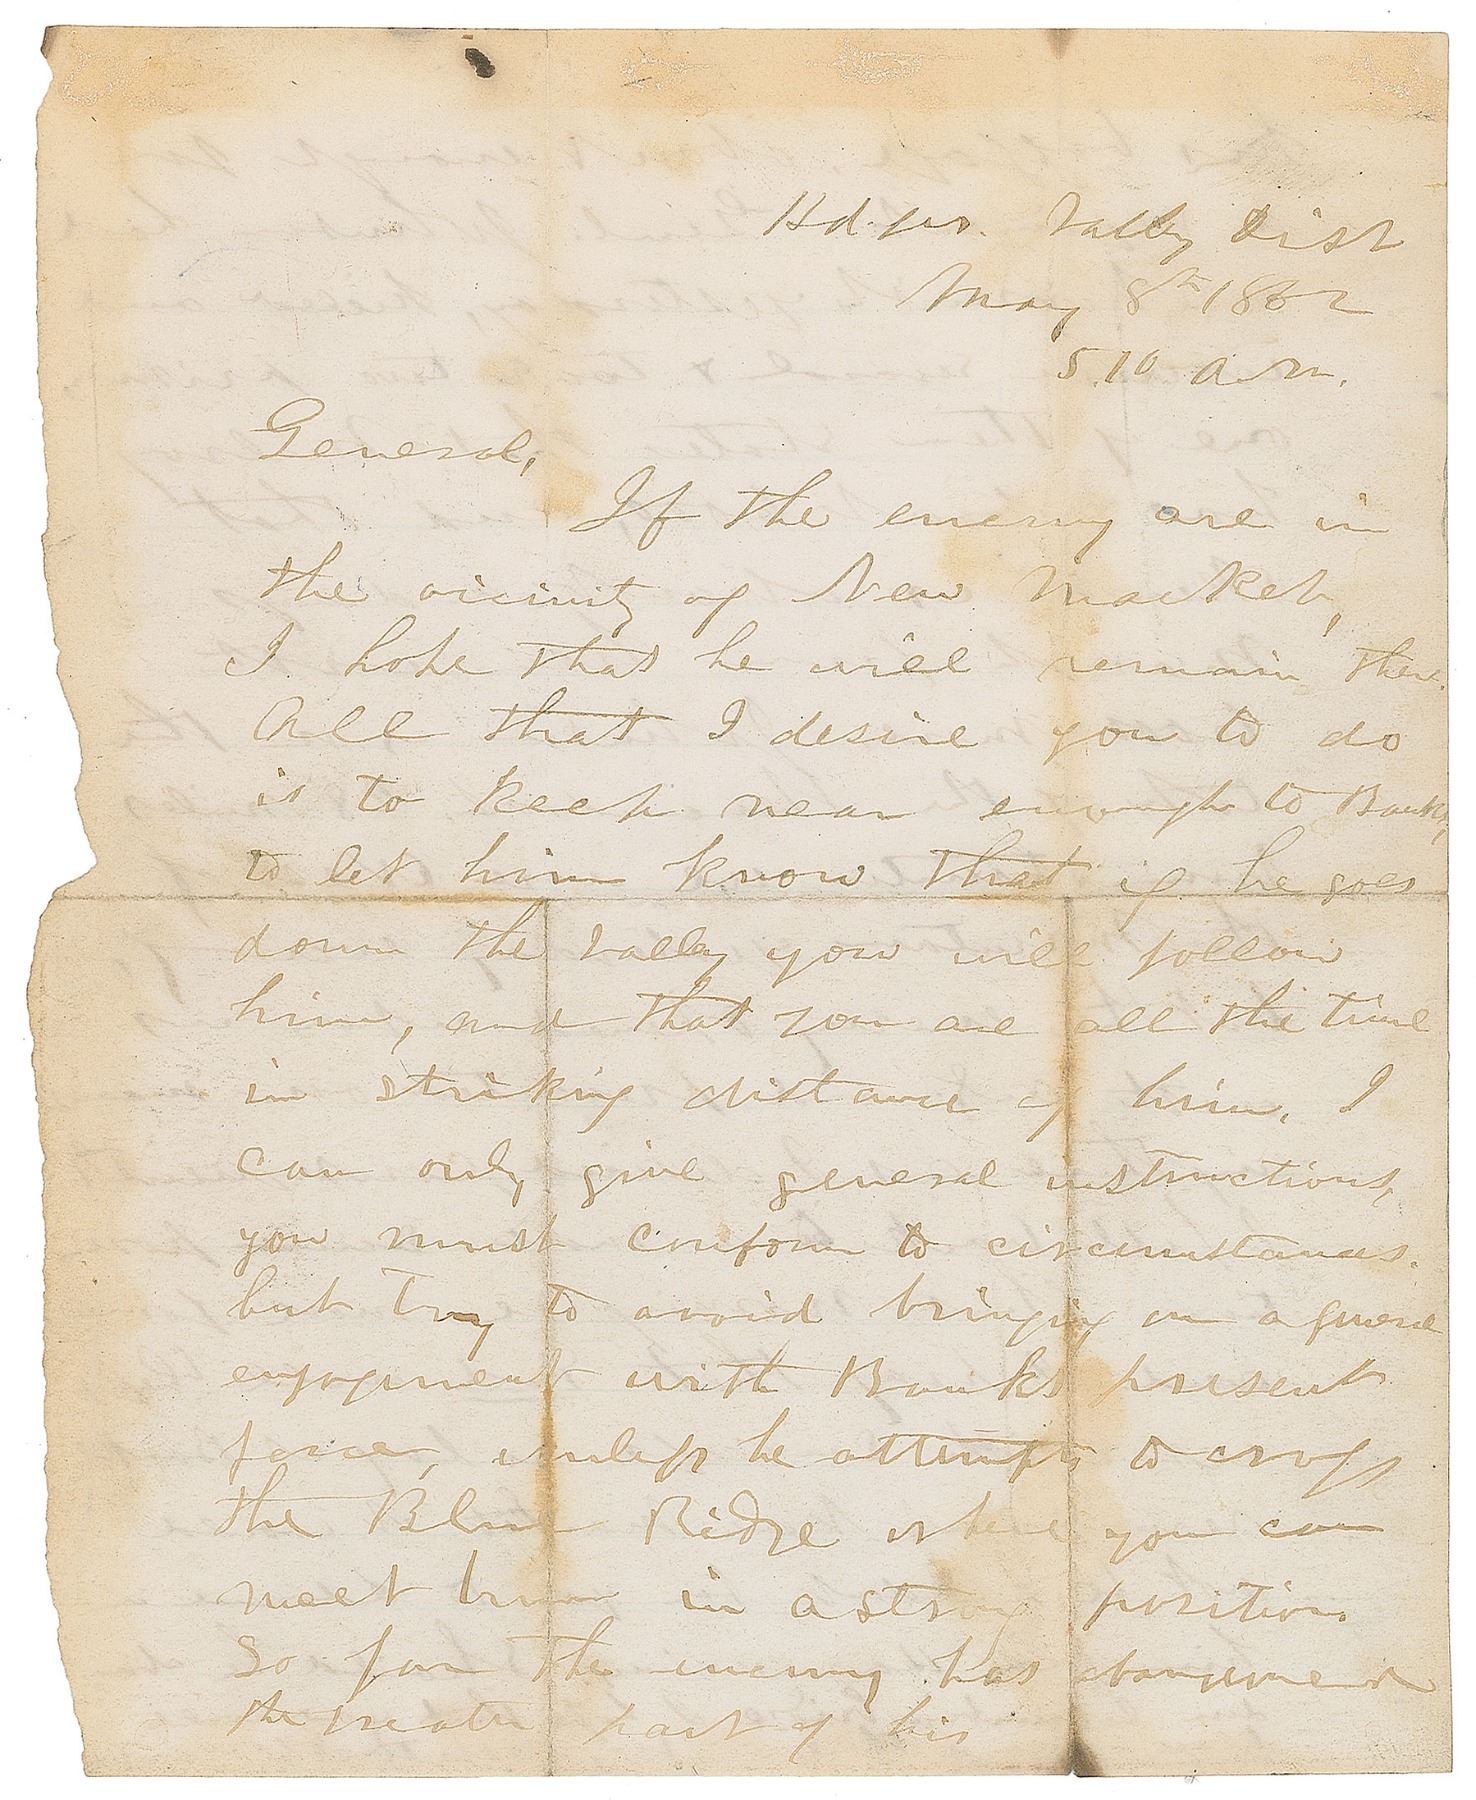 Hd. qrs. Valley Dist
May 8th 1862
5.10 a.m.
General,
If the enemy are in
the vicinity of New Market,
I hope that he will remain there.
All that I desire you to do
is to keep near enough to Banks,
to let him know that if he goes
down the valley you will follow
him, and that you are all the time
in striking distance of him. I
can only give general instructions,
you must conform to circumstances.
but try to avoid bringing on a general
engagement with Banks present
force, unless he attempts to cross
the Blue Ridge where you can
meet him in a strong position.
So far the enemy has
the greater part of his